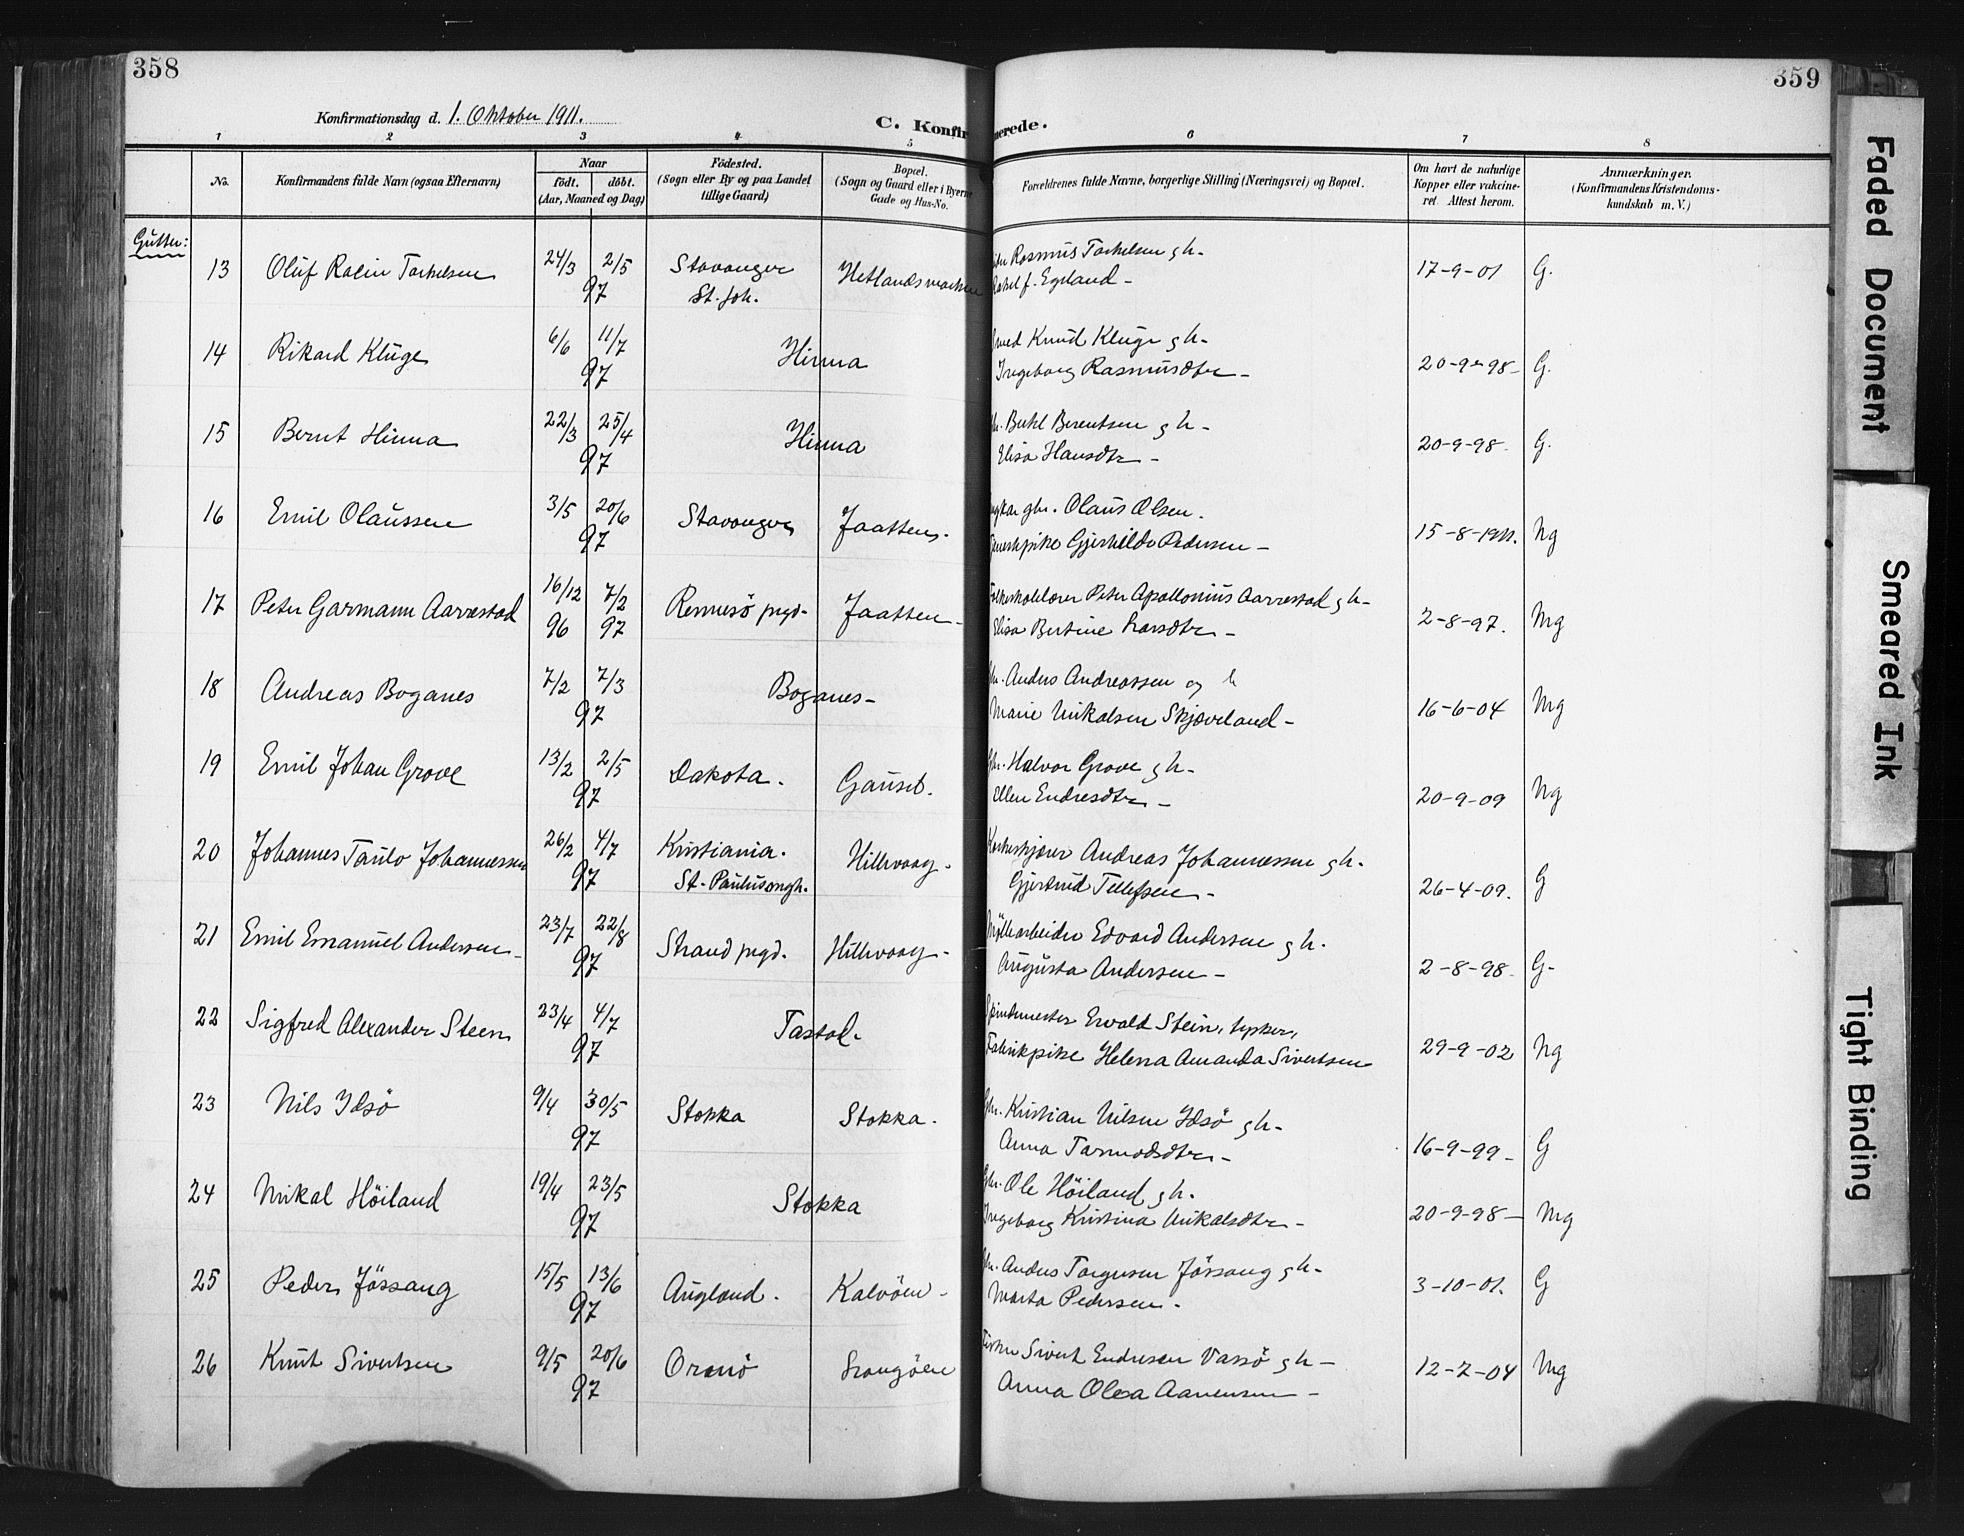 358
359
Konfirmationsdag d. 1. Oktober 1911.
C. Konfir
merede.
1 2 3 4 5 6 7 8
No.
Konfirmandens fulde Navn (ogsaa Efternavn)
Naar
født. døbt.
(Aar, Maaned og Dag)
Fødested.
(Sogn eller By og paa Landet
tillige Gaard)
Bopæl.
(Sogn og Gaard eller i Byerne
Gade og Hus-No.
Forældrenes fulde Navne, borgerlige Stilling (Næringsvei) og Bopæl.
Om havt de naturlige
Kopper eller vakcine-
ret. Attest herom.
Anmærkninger.
(Konfirmandens Kristendoms-
kundskab m. V.)
Gutter:
13 Oluf Rolin Torkelsen 24/3 2/5 97 Stavanger St. Joh. Hetlandsmarken
Rasmus Torkelsen g h-
Rakel f. Egeland -
17-9-01 G.
14 Rikard Kluge 6/6 11/7 97 Hinna
Smed Knud Kluge g h-
Ingeborg Rasmusdtr -
20-9-98- G.
15 Bernt Hinna 22/3 25/4 97 Hinna
Berentsen g h -
Elisa Hansdtr -
20-9-98. G.
16 Emil Olaussen 3/5 20/6 97 Stavanger Jaatten-
Olaus Olsen.
Gjerhilde Pedersen -
15-8-1911. Ng
17 Peter Garmann Aarrestad 16/12 96 7/2 97 Rennesö prgd- Jaatten -
Folkeskolelærer Peter Apollonius Aarrestad g h-
Elisa Bertine Larsdtr -
2-8-97. Mg
18 Andreas Boganes 7/2 7/3 97 Boganes-
Gbr. Anders Andreassen og h
Marie Mikalsen Skjæveland -
16-6-04 Mg
19 Emil Johan Grove 13/2 2/5 97 Dakota. Gausel.
Gbr. Halvor Grove g h-
Ellen Endresdtr -
20-9-09 Ng
20 Johannes Taulo Johannessen 26/2 4/7 97 Kristiania. St. Paulusmgh. Hillevaag-
Andreas Johannessen g h.
Gjertrud Tellefsen -
26-4-09. G
21 Emil Emanuel Andersen - 23/7 22/8 97 Strand prgd. Hillevaag-
Møllearbeider Edvard Andersen g h.
Augusta Andersen -
2-8-98. G-
22 Sigfred Alexander Steen 23/4 4/7 97 Tastad.
Spindemester Ewald Stein, tysker,
Fabrikpike Helena Amanda Sivertsen
29-9-02 Ng
23 Nils Idsö 9/4 30/5 97 Stokka Stokka.
Gbr. Kristian Nilsen Idsö g h-
Anna Tormodsdtr -
16-9-99- G
24 Mikal Höiland 19/4 23/5 97 Stokka
Gbr. Ole Höiland g h.
Ingeborg Kristina Mikalsdtr -
20-9-98- Mg
25 Peder Jössang 15/5 13/6 97 Augland. Kalvöen -
Gbr. Anders Torgersen Jössang g h-
Marta Pedersen.
3-10-01. G
26 Knut Sivertsen 9/5 20/6 97 Ormö
Fisker Sivert Endresen Vassö g h -
Anna Olea Aanensen -
12-7-04 Mg
Faded Document
Smeared Ink
Tight Binding